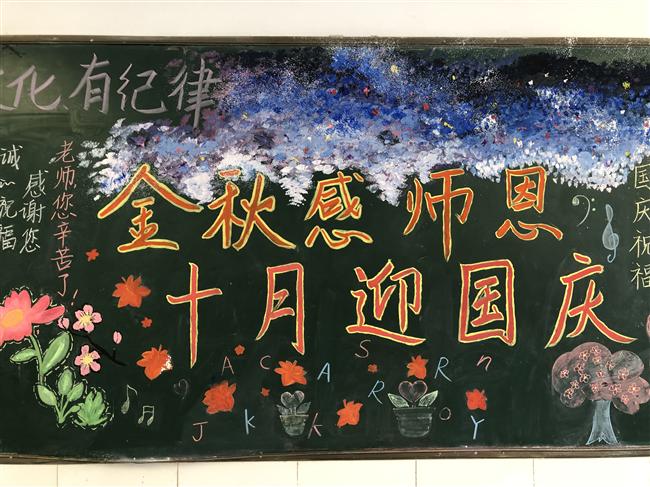 文化 有纪律
金秋感师恩
十月迎国庆
老师您辛苦了!
感谢您
诚心祝福
国庆祝福
A C A S R n
J K K R O Y